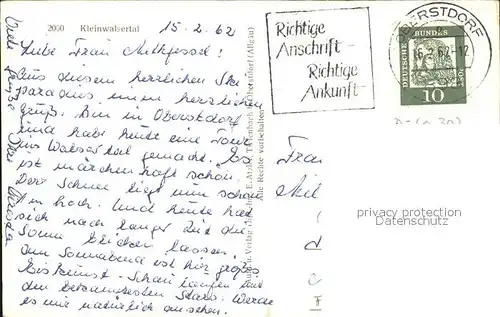 2090 Kleinwalsertal
15.2.62
Liebe Frau
Aus diesem herrlichen Ski
paradies einen herzlichen
Gruß. Bin in Oberstdorf
und habe heute eine Tour
ins Walsertal gemacht. Es
ist märchenhaft schön.
Der Schnee liegt nun schon
1 m hoch. Und heute hat
sich nach langer Zeit die
Sonne blicken lassen.
Am Sonnabend ist hier großes
Eiskunst-Schaulaufen mit
den bekanntesten Stars. Werde
es mir natürlich ansehen.
Richtige
Anschrift-
Richtige
Ankunft-
OBERSTDORF
2.62-12
DEUTSCHE BUNDESPOST
10
Alle Rechte vorbehalten
Frau
privacy protection
oldthing.com